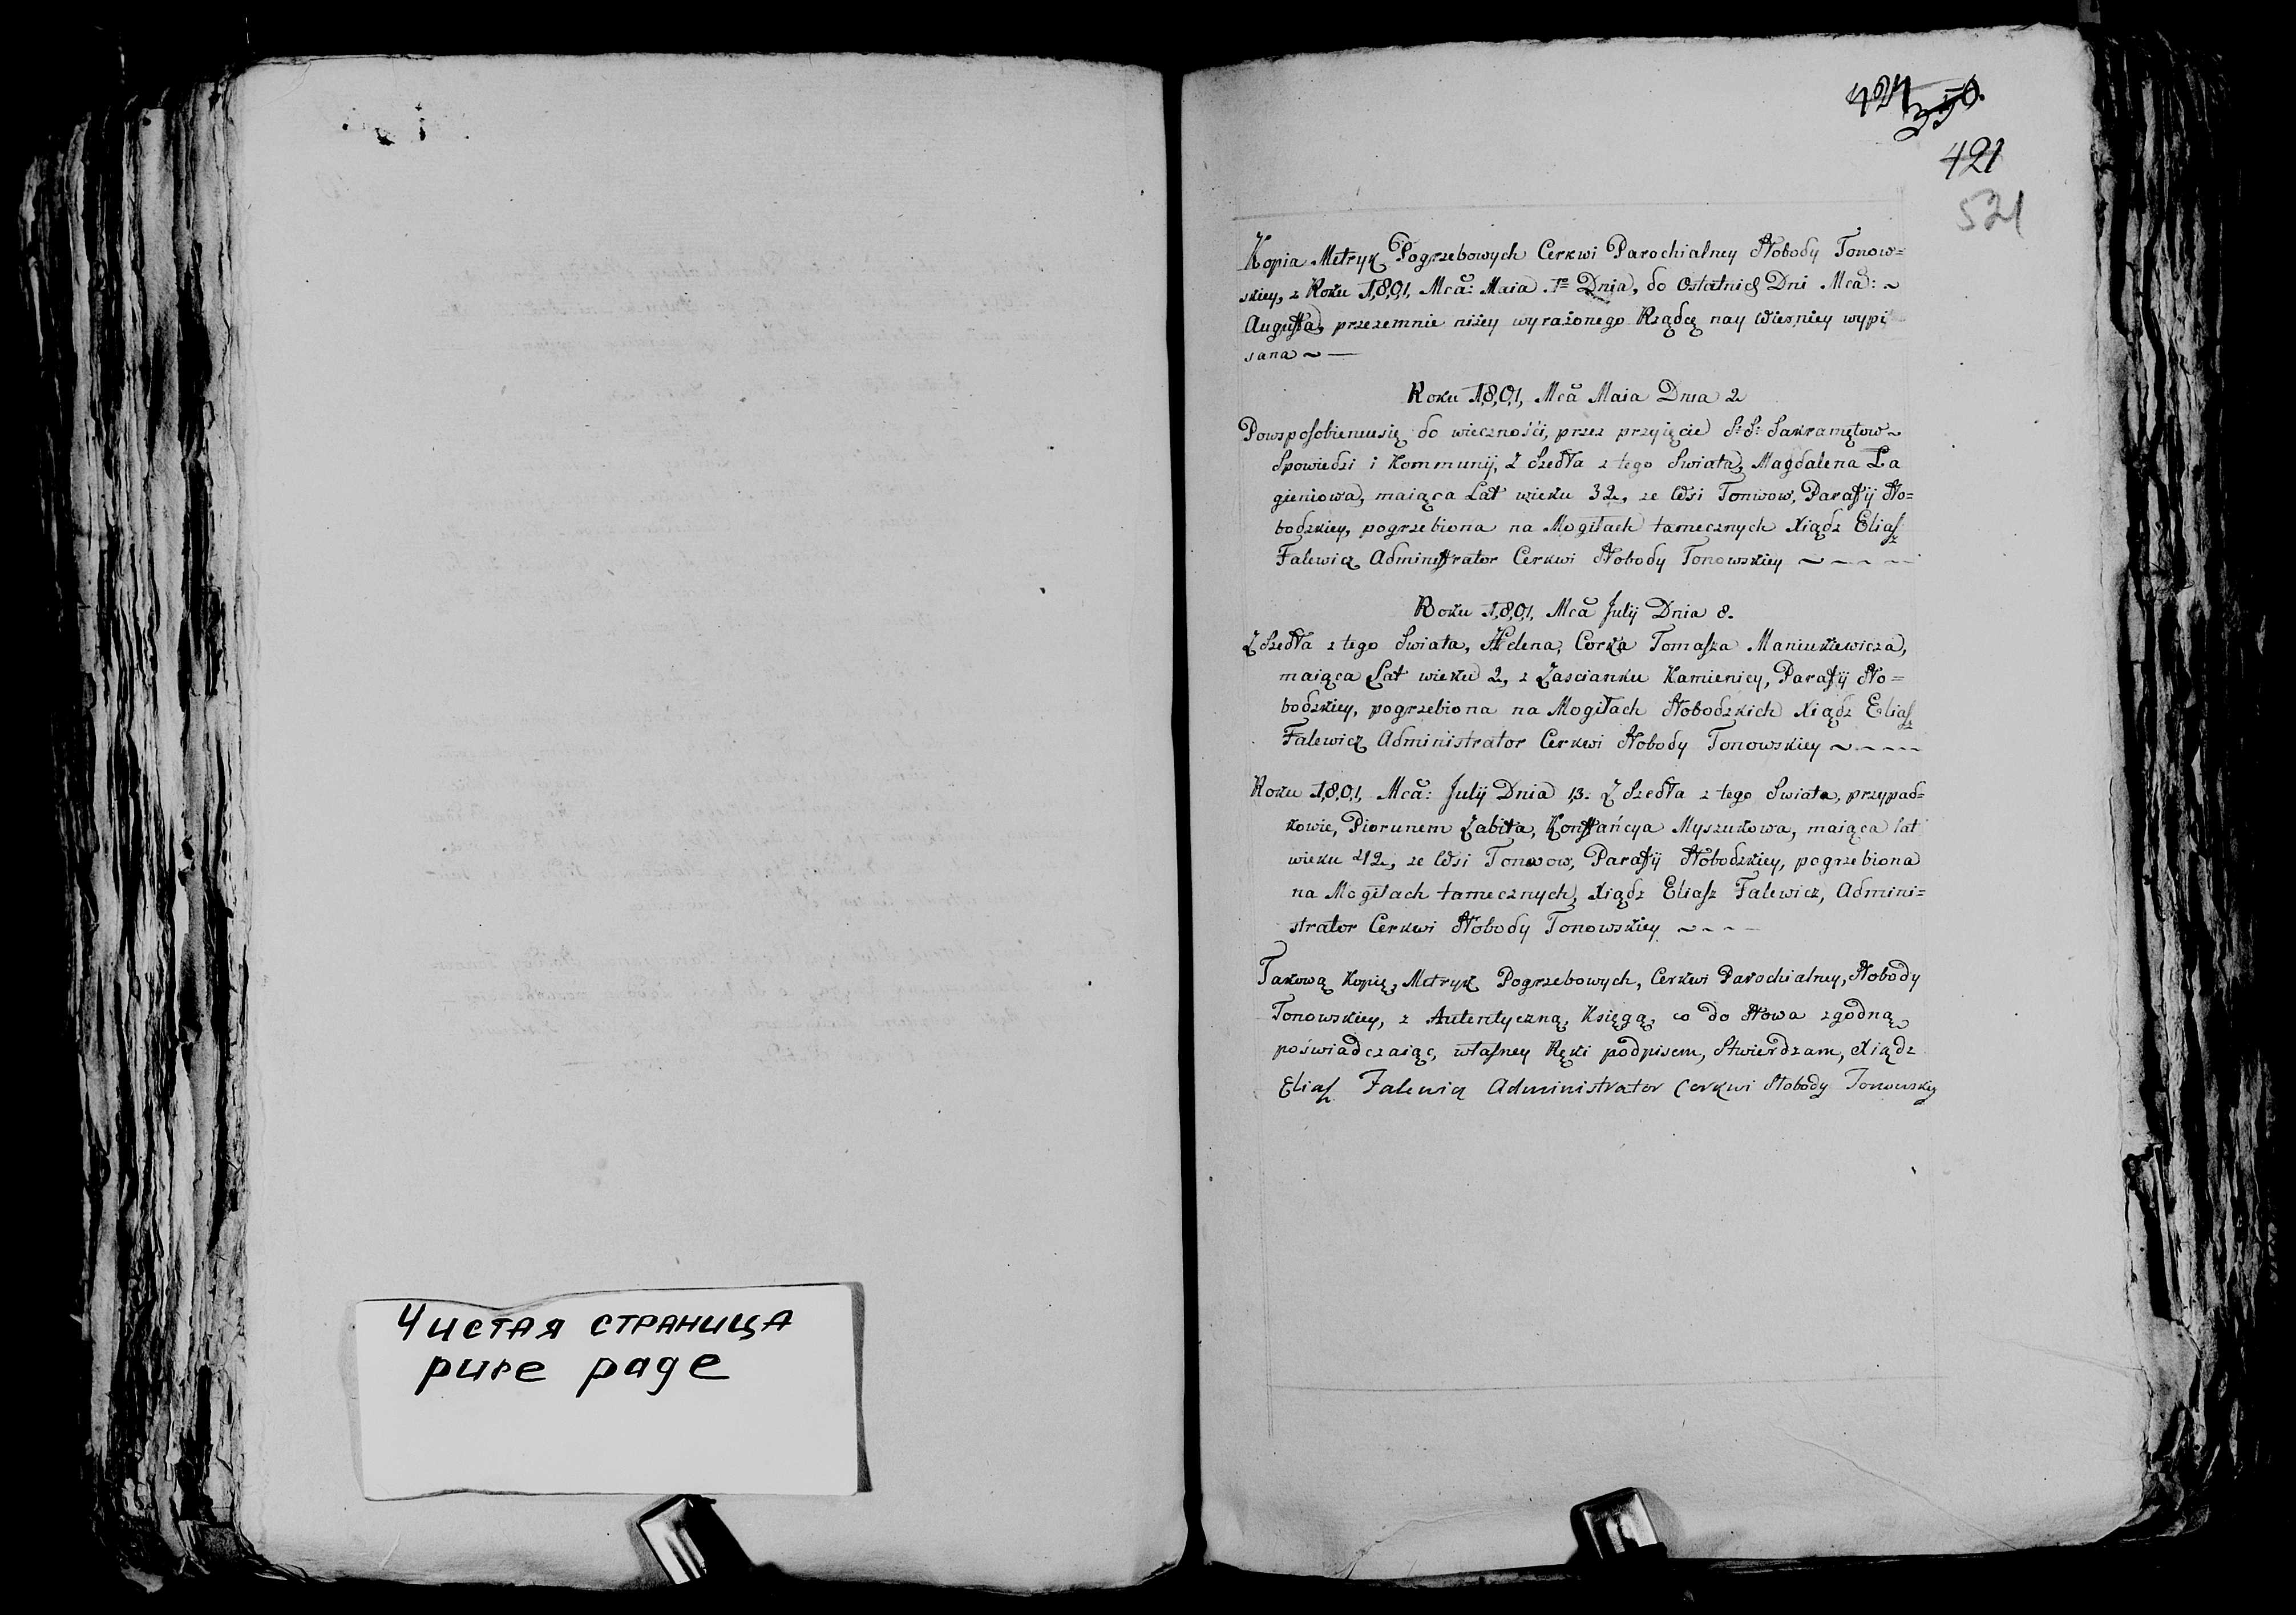 Чистая страница
pure page
424 350.
421
521
Kopia Metryk Pogrzebowych Cerkwi Parochialney Słobody Tonow=
skiey, z Roku 1801, Mcã: Maia 1go Dnia, do Ostatnich Dni Mcã: ~
Augusta, przezemnie niżey wyrażonego Rządcę nay Wierniey wypi
sana ~ —
Roku 1801, Mcã Maia Dnia 2
Powsposobieniusię do wieczności, przez przyięcie S: S: Sakramętow ~
Spowiedzi i Kommunij, Z Szedła z tego Swiata, Magdalena Ła
gieniowa, maiąca Lat wieku 32, ze Wsi Tonwow, Parafij Sło=
bodzkiey, pogrzebiona na Mogiłach tamecznych Xiądz Eliasz
Falewicz Administrator Cerkwi Słobody Tonowskiey ~ ~ ~ ~
Roku 1801, Mcã Julij Dnia 8.
Z Szedła z tego Swiata, Helena, Corka Tomasza Maniukiewicza,
maiąca Lat wieku 2, z Zascianku Kamienicy, Parafij Sło=
bodzkiey, pogrzebiona na Mogiłach Słobodzkich Xiądz Eliasz
Falewicz Administrator Cerkwi Słobody Tonowskiey ~ ~ ~ ~
Roku 1801, Mcã: Julij Dnia 13. Z Szedła z tego Swiata, przypad=
kowie, Piorunem Zabita, Konstańcya Myszukowa, maiąca lat
wieku 42, ze Wsi Tonwow, Parafij Słobodzkiey, pogrzebiona
na Mogiłach tamecznych, Xiądz Eliasz Falewicz, Admini=
strator Cerkwi Słobody Tonowskiey ~ ~ ~ ~
Takową Kopię, Metryk Pogrzebowych, Cerkwi Parochialney, Słobody
Tonowskiey, z Autentyczną, Księgą, co do Słowa zgodną
poświadczaiąc, własney Ręki podpisem, Stwierdzam, Xiądz
Eliasz Falewicz Administrator Cerkwi Słobody Tonowskiey